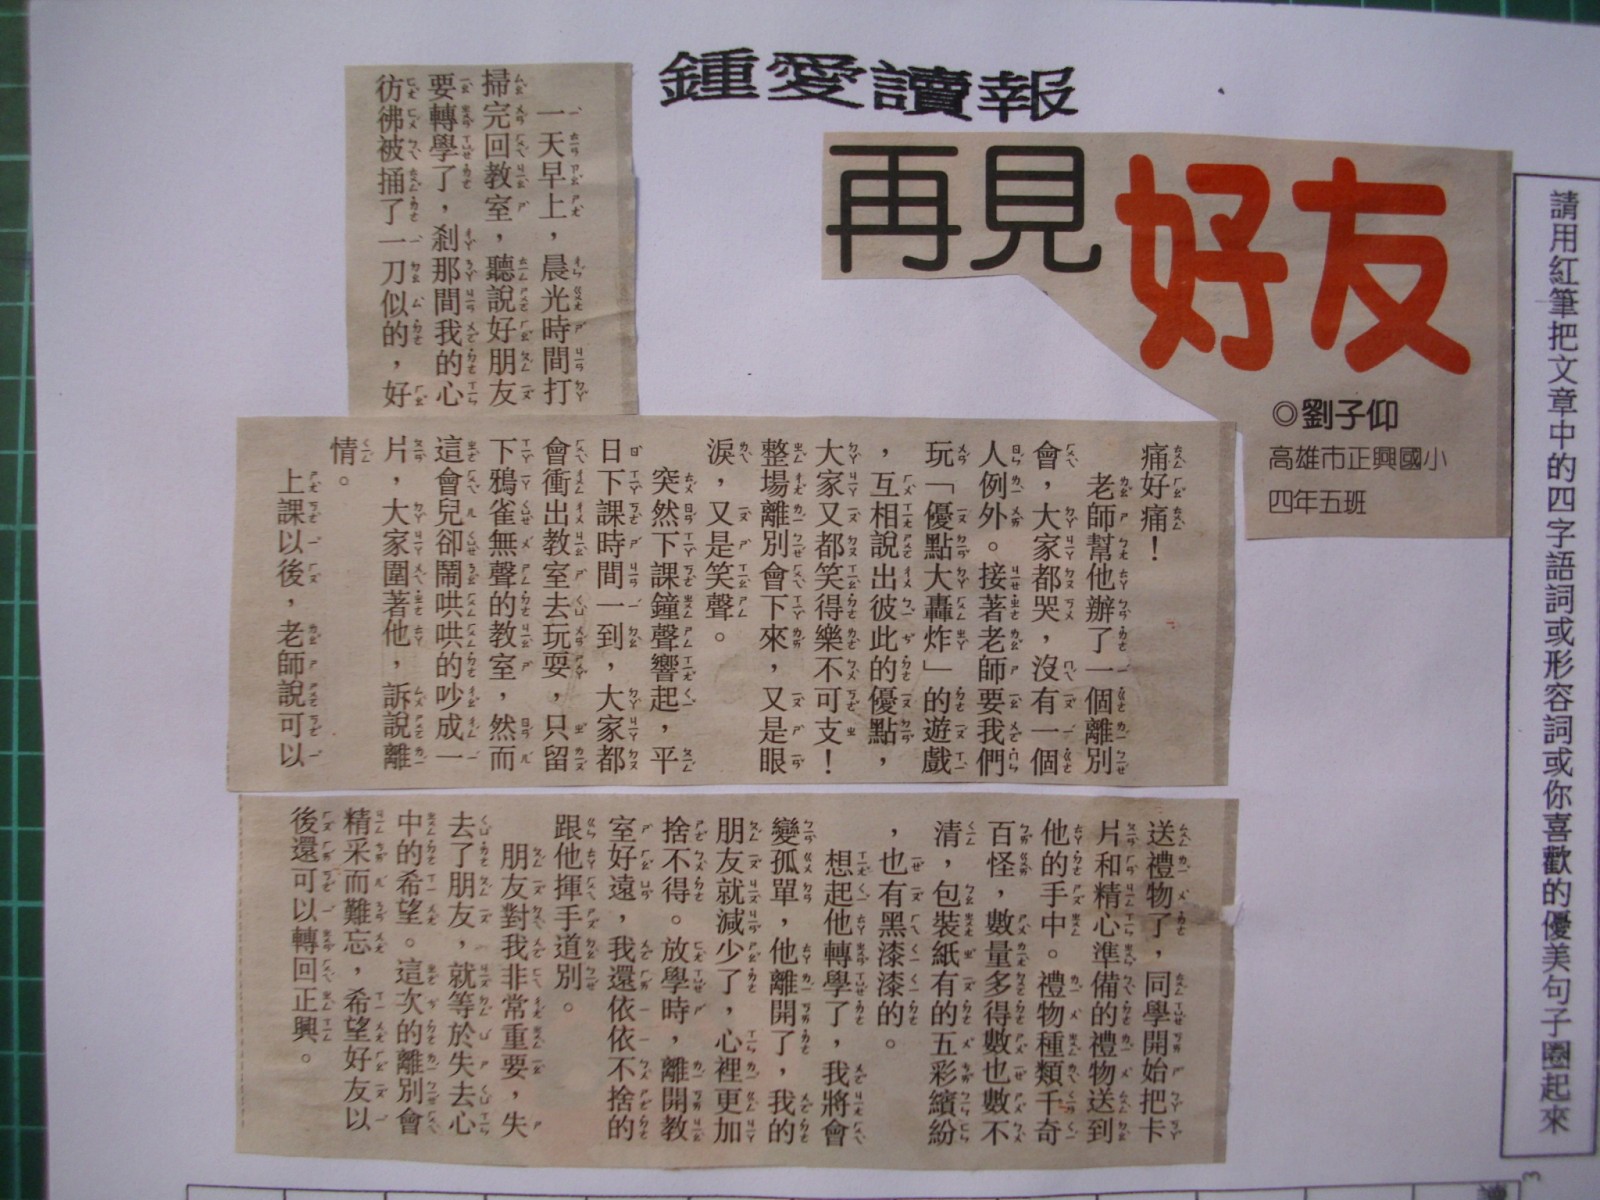 鍾愛讀報
再見好友
◎劉子仰
高雄市正興國小
四年五班
請用紅筆把文章中的四字語詞或形容詞或你喜歡的優美句子圈起來
一天早上，晨光時間打
掃完回教室，聽說好朋友
要轉學了，剎那間我的心
彷彿被捅了一刀似的，好
痛好痛！
老師幫他辦了一個離別
會，大家都哭，沒有一個
人例外。接著老師要我們
玩「優點大轟炸」的遊戲
，互相說出彼此的優點，
大家又都笑得樂不可支！
整場離別會下來，又是眼
淚，又是笑聲。
突然下課鐘聲響起，平
日下課時間一到，大家都
會衝出教室去玩耍，只留
下鴉雀無聲的教室，然而
這會兒卻鬧哄哄的吵成一
片，大家圍著他，訴說離
情。
上課以後，老師說可以
送禮物了，同學開始把卡
片和精心準備的禮物送到
他的手中。禮物種類千奇
百怪，數量多得數也數不
清，包裝紙有的五彩繽紛
，也有黑漆漆的。
想起他轉學了，我將會
變孤單，他離開了，我的
朋友就減少了，心裡更加
捨不得。放學時，離開教
室好遠，我還依依不捨的
跟他揮手道別。
朋友對我非常重要，失
去了朋友，就等於失去心
中的希望。這次的離別會
精采而難忘，希望好友以
後還可以轉回正興。
3